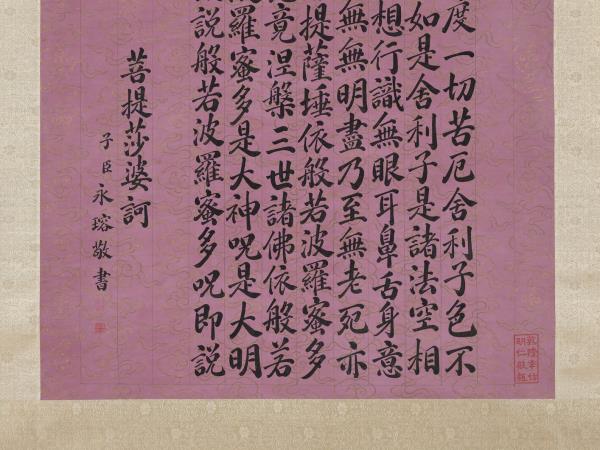 度一切苦厄舍利子色不
如是舍利子是諸法空相
想行識無眼耳鼻舌身意
無無明盡乃至無老死亦
提薩埵依般若波羅蜜多
竟涅槃三世諸佛依般若
羅蜜多是大神呪是大明
說般若波羅蜜多呪即說
菩提莎婆訶
子臣永瑢敬書
乾隆年仿
明仁殿紙